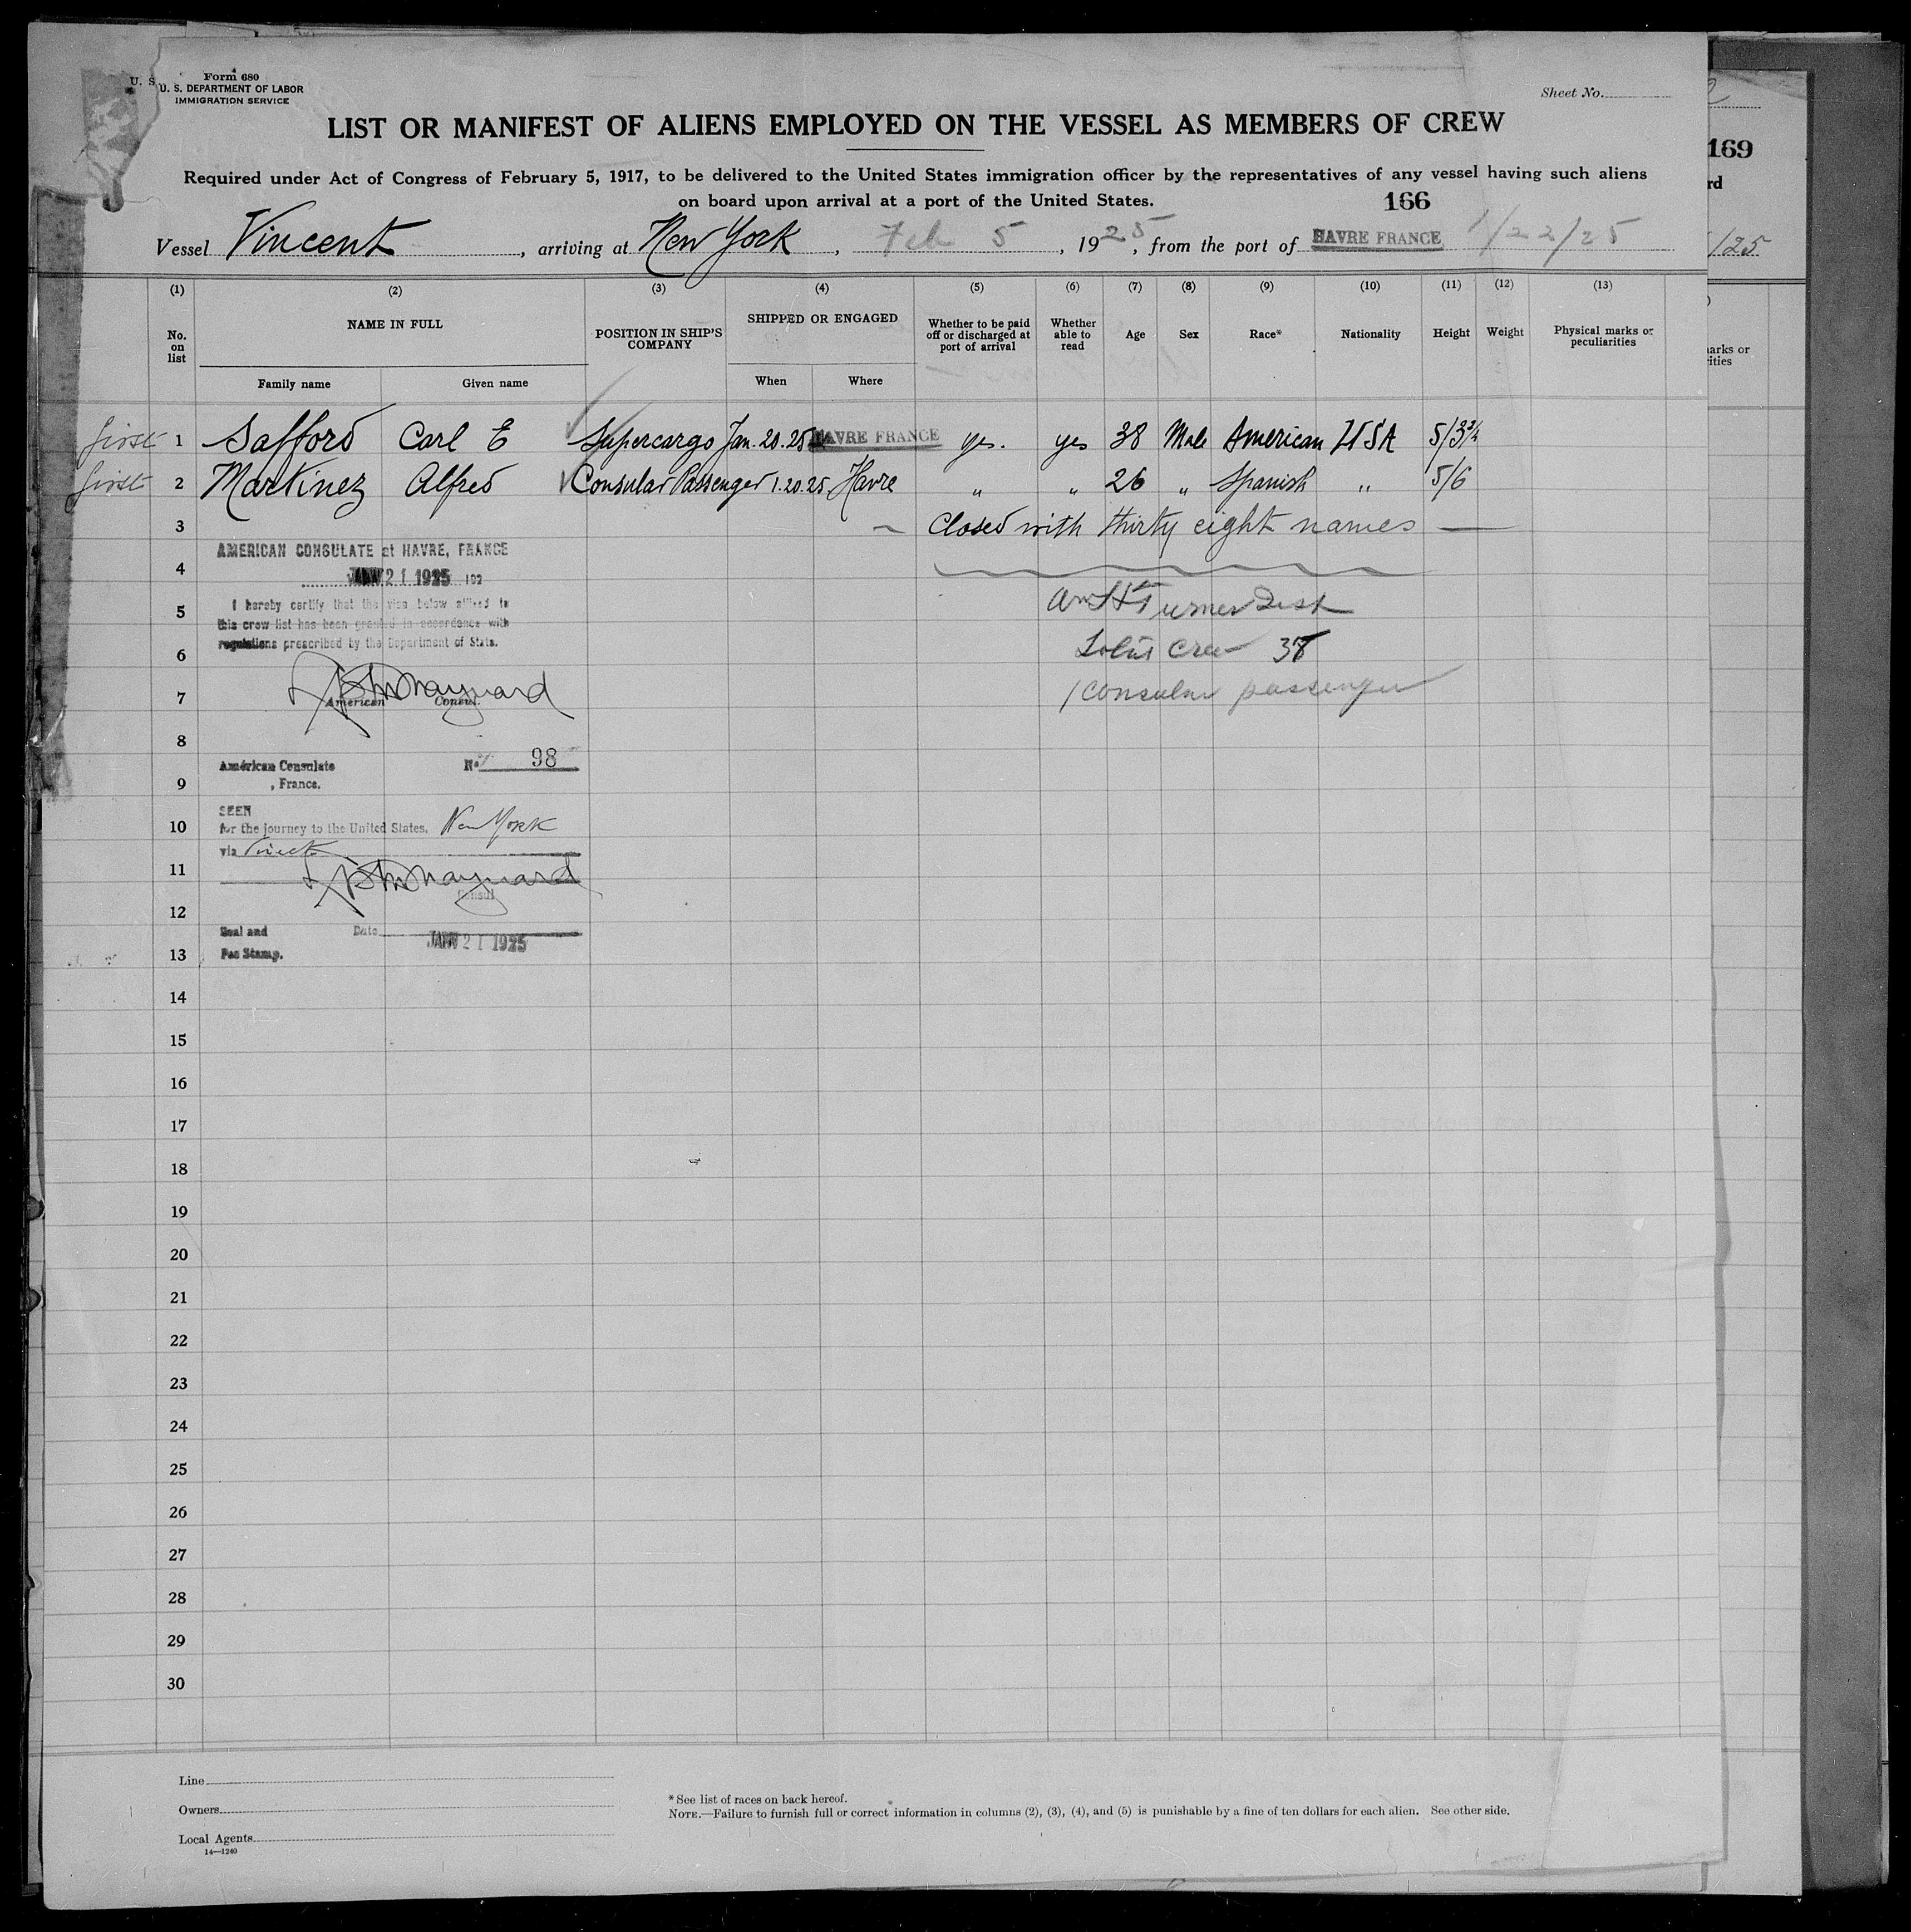 U. S.
Form 680
U. S. DEPARTMENT OF LABOR
IMMIGRATION SERVICE
Sheet No.
LIST OR MANIFEST OF ALIENS EMPLOYED ON THE VESSEL AS MEMBERS OF CREW
169
Required under Act of Congress of February 5, 1917, to be delivered to the United States immigration officer by the representatives of any vessel having such aliens
rd
on board upon arrival at a port of the United States.
166
Vessel Vincent, arriving at New York, Feb 5, 1925, from the port of HAVRE FRANCE 1/22/25
/25
(1) (2) (3) (4) (5) (6) (7) (8) (9) (10) (11) (12) (13)
No. on list
NAME IN FULL
Family name Given name
POSITION IN SHIP'S COMPANY
SHIPPED OR ENGAGED
When Where
Whether to be paid off or discharged at port of arrival
Whether able to read
Age Sex Race* Nationality Height Weight
Physical marks or peculiarities
arks or
ities
first 1 Safford Carl E Supercargo Jan. 20. 25 HAVRE FRANCE yes. yes 38 Male American USA 5/3¾
first 2 Martinez Alfred Consular Passenger 1.20.25 Havre " " 26 " Spanish " 5/6
3 Closed with thirty eight names
AMERICAN CONSULATE at HAVRE, FRANCE
4
JAN 21 1925 192
I hereby certify that the visa below affixed to
5 Turner
this crew list has been granted in accordance with
regulations prescribed by the Department of State.
6 Crew 38
7 1 consular passenger
American Consul.
8
American Consulate No. 98
9 , France.
SEEN
10 for the journey to the United States, New York
via Direct
11
Consul
12
Seal and Date JAN 21 1925
13 Fee Stamp.
14
15
16
17
18
19
20
21
22
23
24
25
26
27
28
29
30
Line
Owners
Local Agents
14—1240
* See list of races on back hereof.
NOTE.—Failure to furnish full or correct information in columns (2), (3), (4), and (5) is punishable by a fine of ten dollars for each alien. See other side.